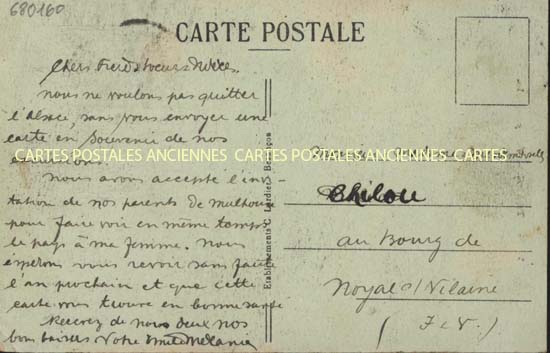 680160
CARTE POSTALE
Chers Frère Soeurs Nièces.
nous ne voulons pas quitter
l'alsace, sans vous envoyer une
carte en souvenir de nos
CARTES POSTALES ANCIENNES CARTES POSTALES ANCIENNES CARTES
nous avons accepté l'invi-
tation de nos parents de mulhouse
pour faire voir en même temps
le pays à ma femme. nous
espérons vous revoir sans faute
l'an prochain et que cette
carte vous trouve en bonne santé
Recevez de nous deux nos
bons baisers Votre Emile Mélanie
Etablissements C. Lardier, Besançon
Chilou
au Bourg de
Noyal s/ Vilaine
(I-V.)